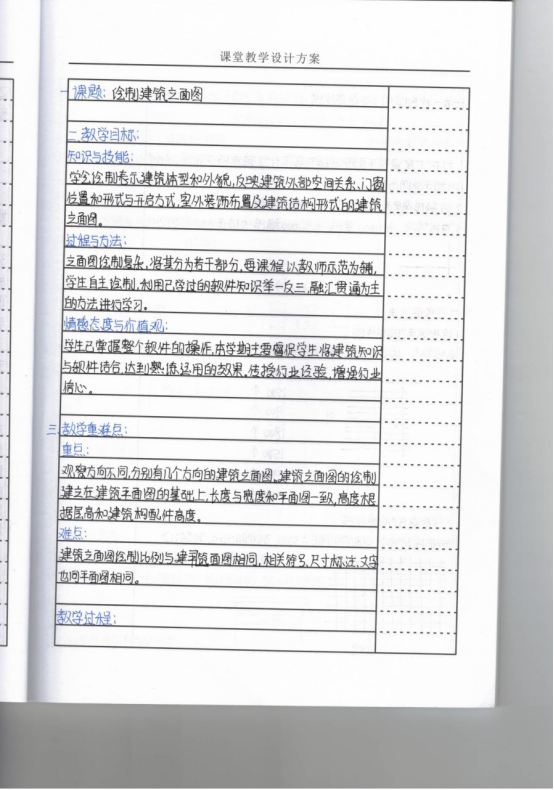 课堂教学设计方案
一课题：绘制建筑立面图
二、教学目标：
知识与技能：
学会绘制表示建筑体型和外貌，反映建筑外部空间关系，门窗
位置和形式与开启方式，室外装饰布置及建筑结构形式的建筑
立面图。
过程与方法：
立面图绘制复杂，将其分为若干部分，每课程以教师示范为辅，
学生自主绘制，利用已学过的软件知识举一反三，融汇贯通为主
的方法进行学习。
情感态度与价值观：
学生已掌握整个软件的操作，本学期主要督促学生将建筑知识
与软件结合，达到熟练运用的效果。传授行业经验，增强行业
信心。
三、教学重难点：
重点：
观察方向不同，分别有几个方向的建筑立面图。建筑立面图的绘制
建立在建筑平面图的基础上，长度与宽度和平面图一致，高度根
据层高和建筑构配件高度。
难点：
建筑立面图绘制比例与建筑面图相同，相关符号，尺寸标注，文字
也同平面图相同。
教学过程：